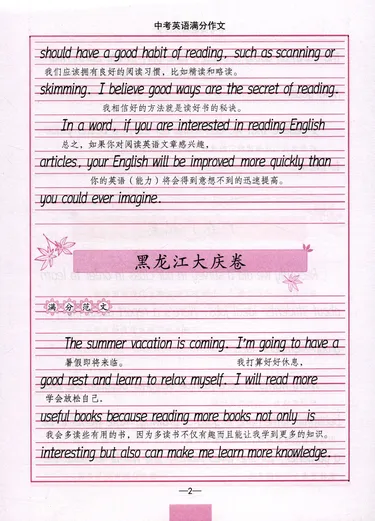 中考英语满分作文
should have a good habit of reading, such as scanning or
我们应该拥有良好的阅读习惯，比如精读和略读。
skimming. I believe good ways are the secret of reading.
我相信好的方法就是读好书的秘诀。
In a word, if you are interested in reading English
总之，如果你对阅读英语文章感兴趣，
articles, your English will be improved more quickly than
你的英语（能力）将会得到意想不到的迅速提高。
you could ever imagine.
黑龙江大庆卷
满分范文
The summer vacation is coming. I'm going to have a
暑假即将来临。 我打算好好休息，
good rest and learn to relax myself. I will read more
学会放松自己。
useful books because reading more books not only is
我会多读些有用的书，因为多读书不仅有趣而且能让我学到更多的知识。
interesting but also can make me learn more knowledge.
—2—